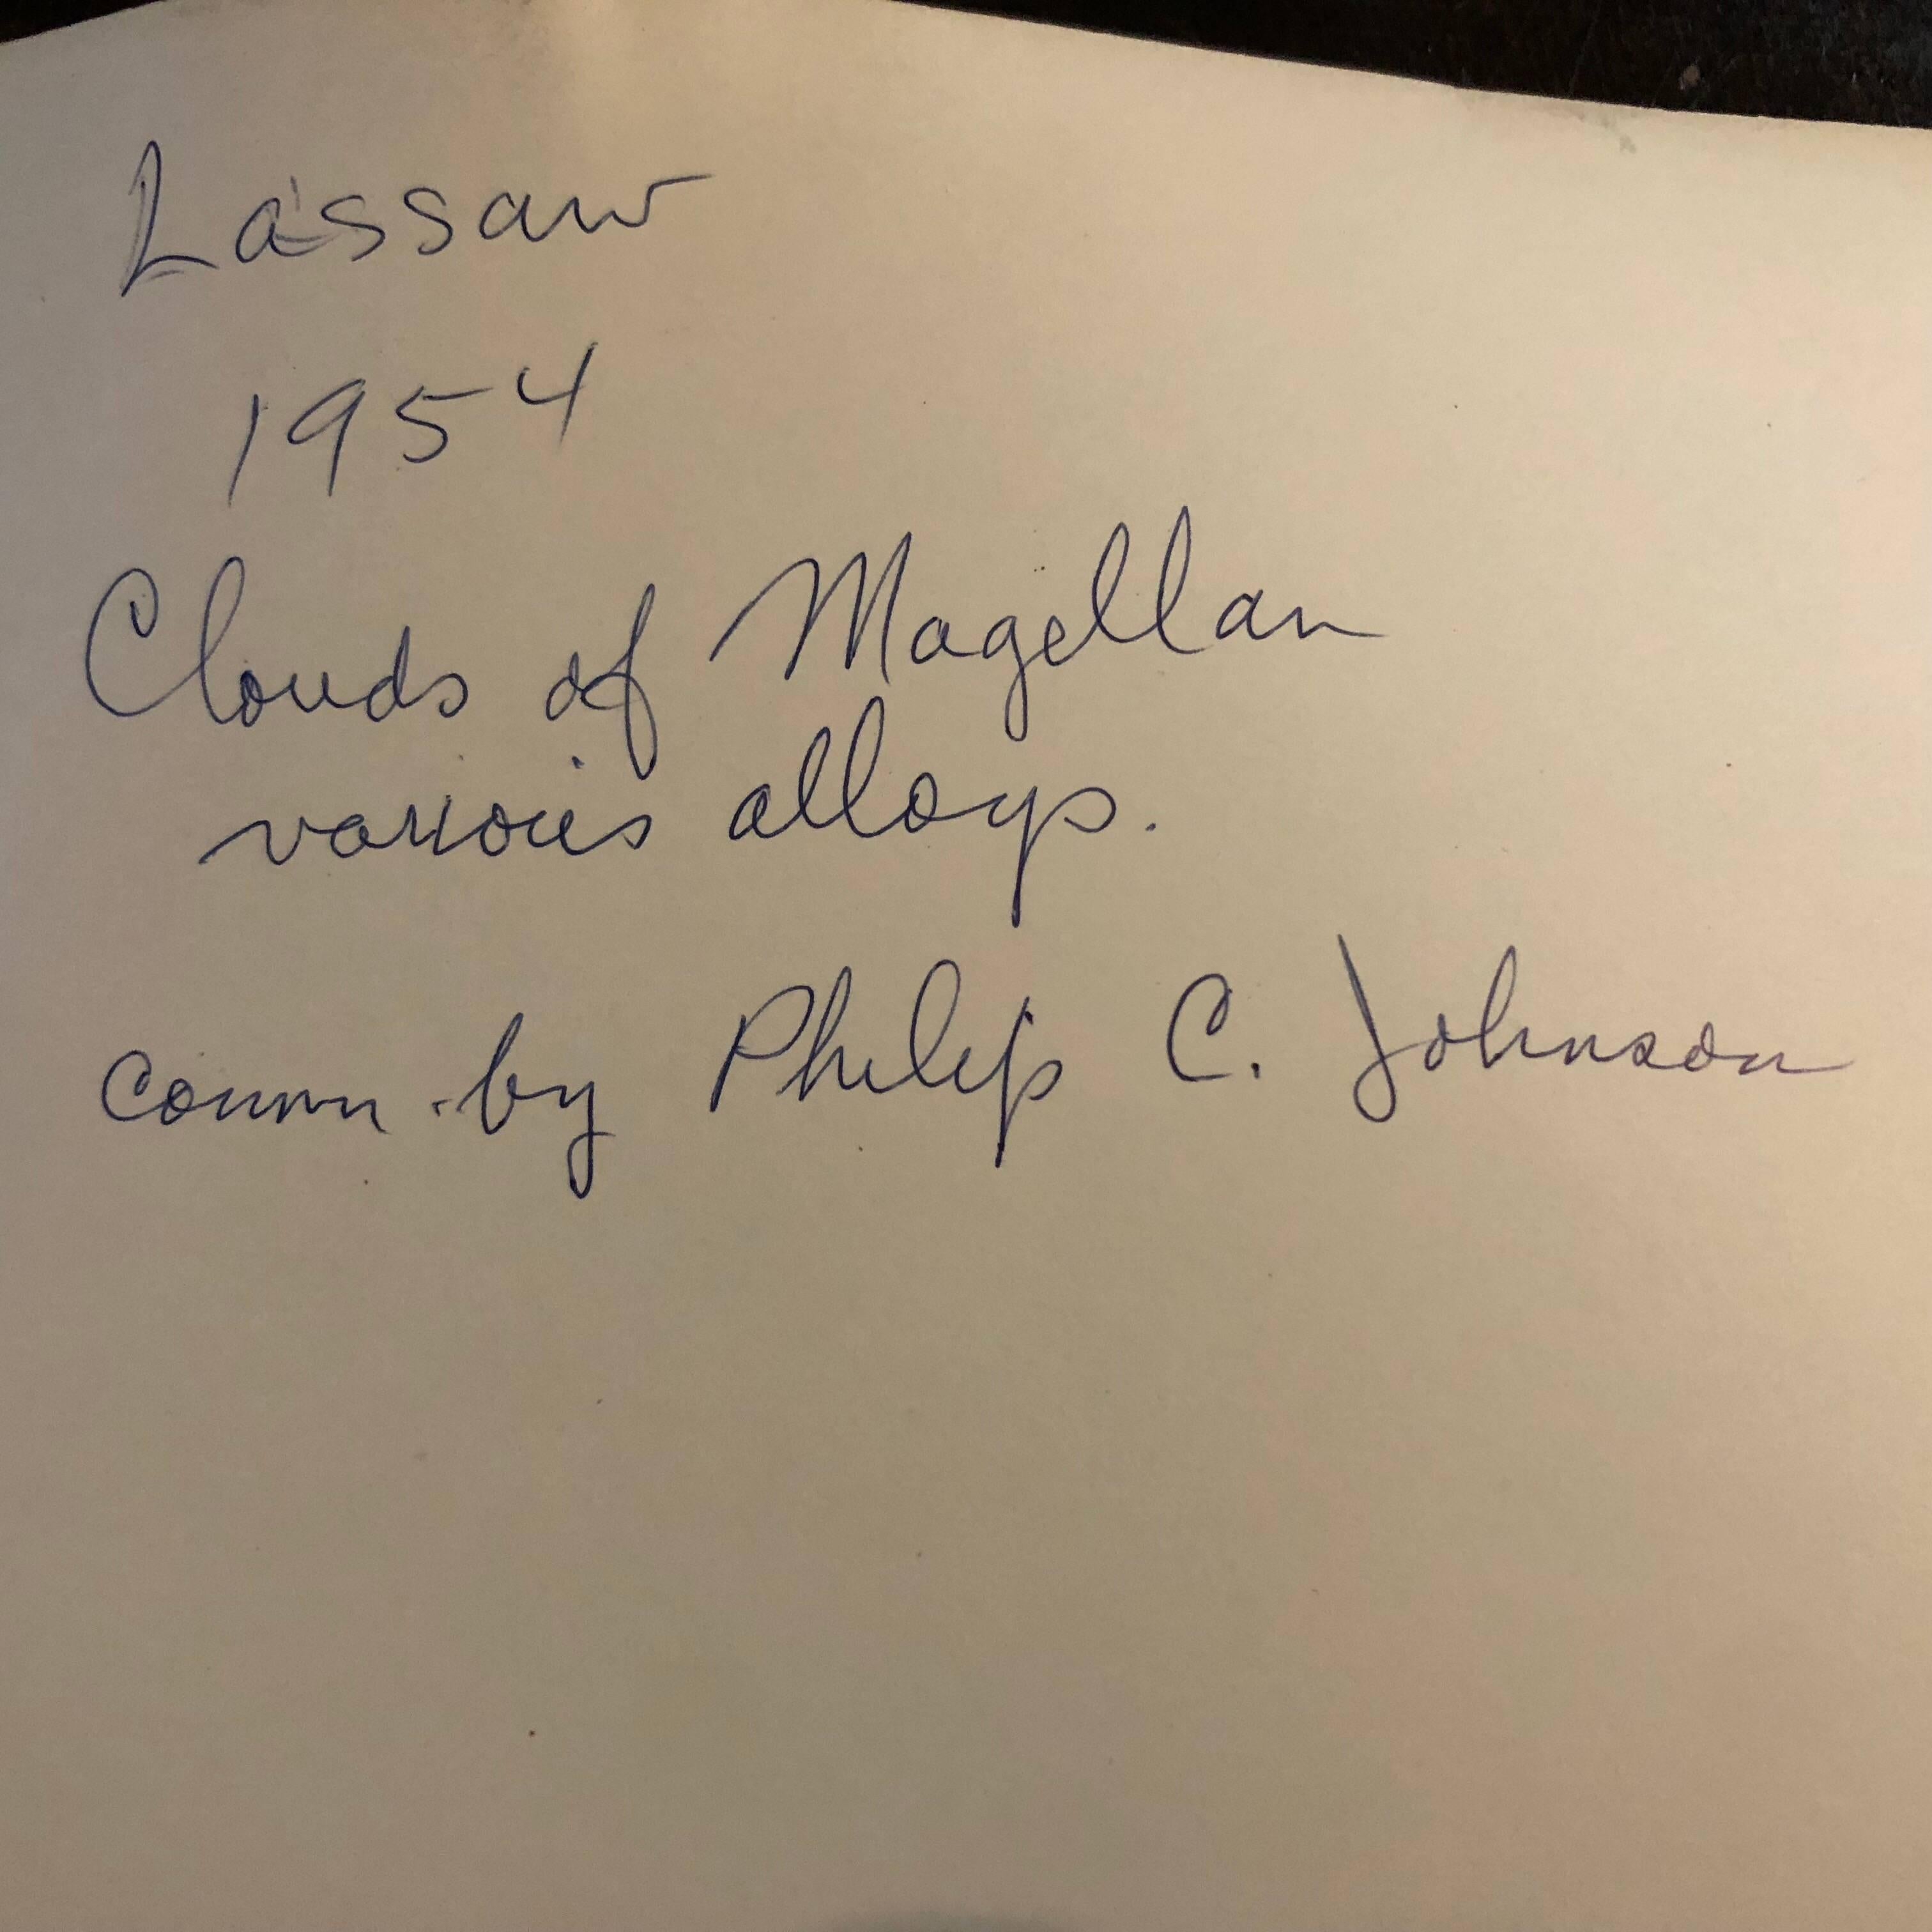 Lassaw
1954
Clouds of Magellan
various alloys.
comm. by Philip C. Johnson